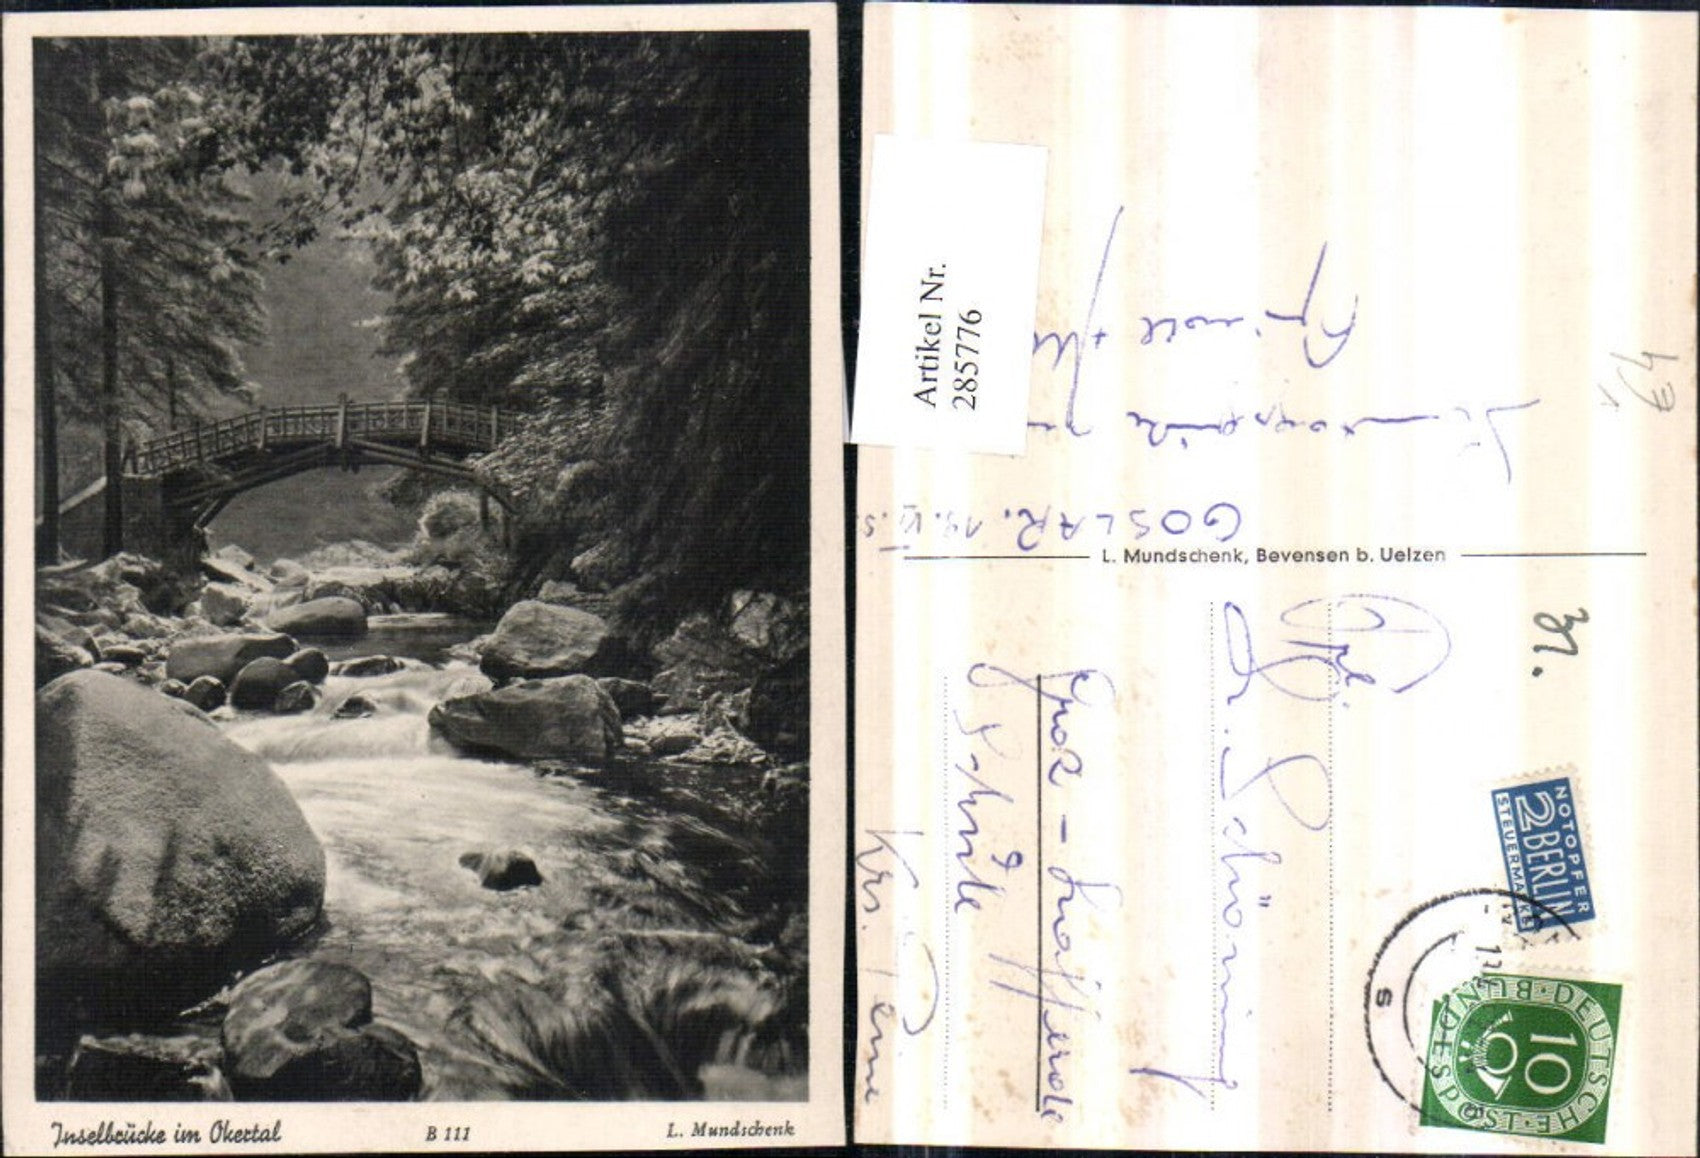 Inselbrücke im Okertal
B 111
L. Mundschenk
Artikel Nr.
285776
GOSLAR.
L. Mundschenk, Bevensen b. Uelzen
Frl.
Schöning
Groß-Lafferde
Schule
Krs. Peine
31.
NOTOPFER
2 BERLIN
STEUERMARKE
DEUTSCHE BUNDESPOST
10